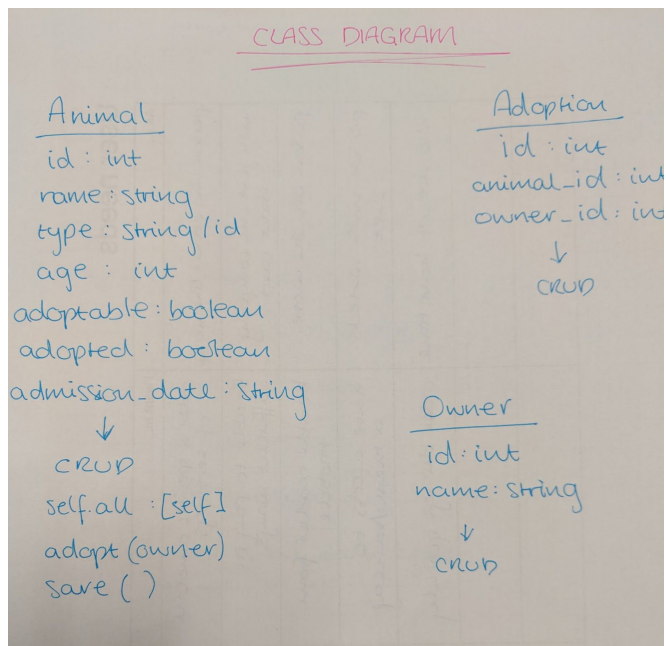 CLASS DIAGRAM
Animal
id : int
name : string
type : string/id
age : int
adoptable : boolean
adopted : boolean
admission_date : string
↓
CRUD
self.all : [self]
adopt (owner)
save ( )
Adoption
id : int
animal_id : int
owner_id : int
↓
CRUD
Owner
id : int
name : string
↓
CRUD